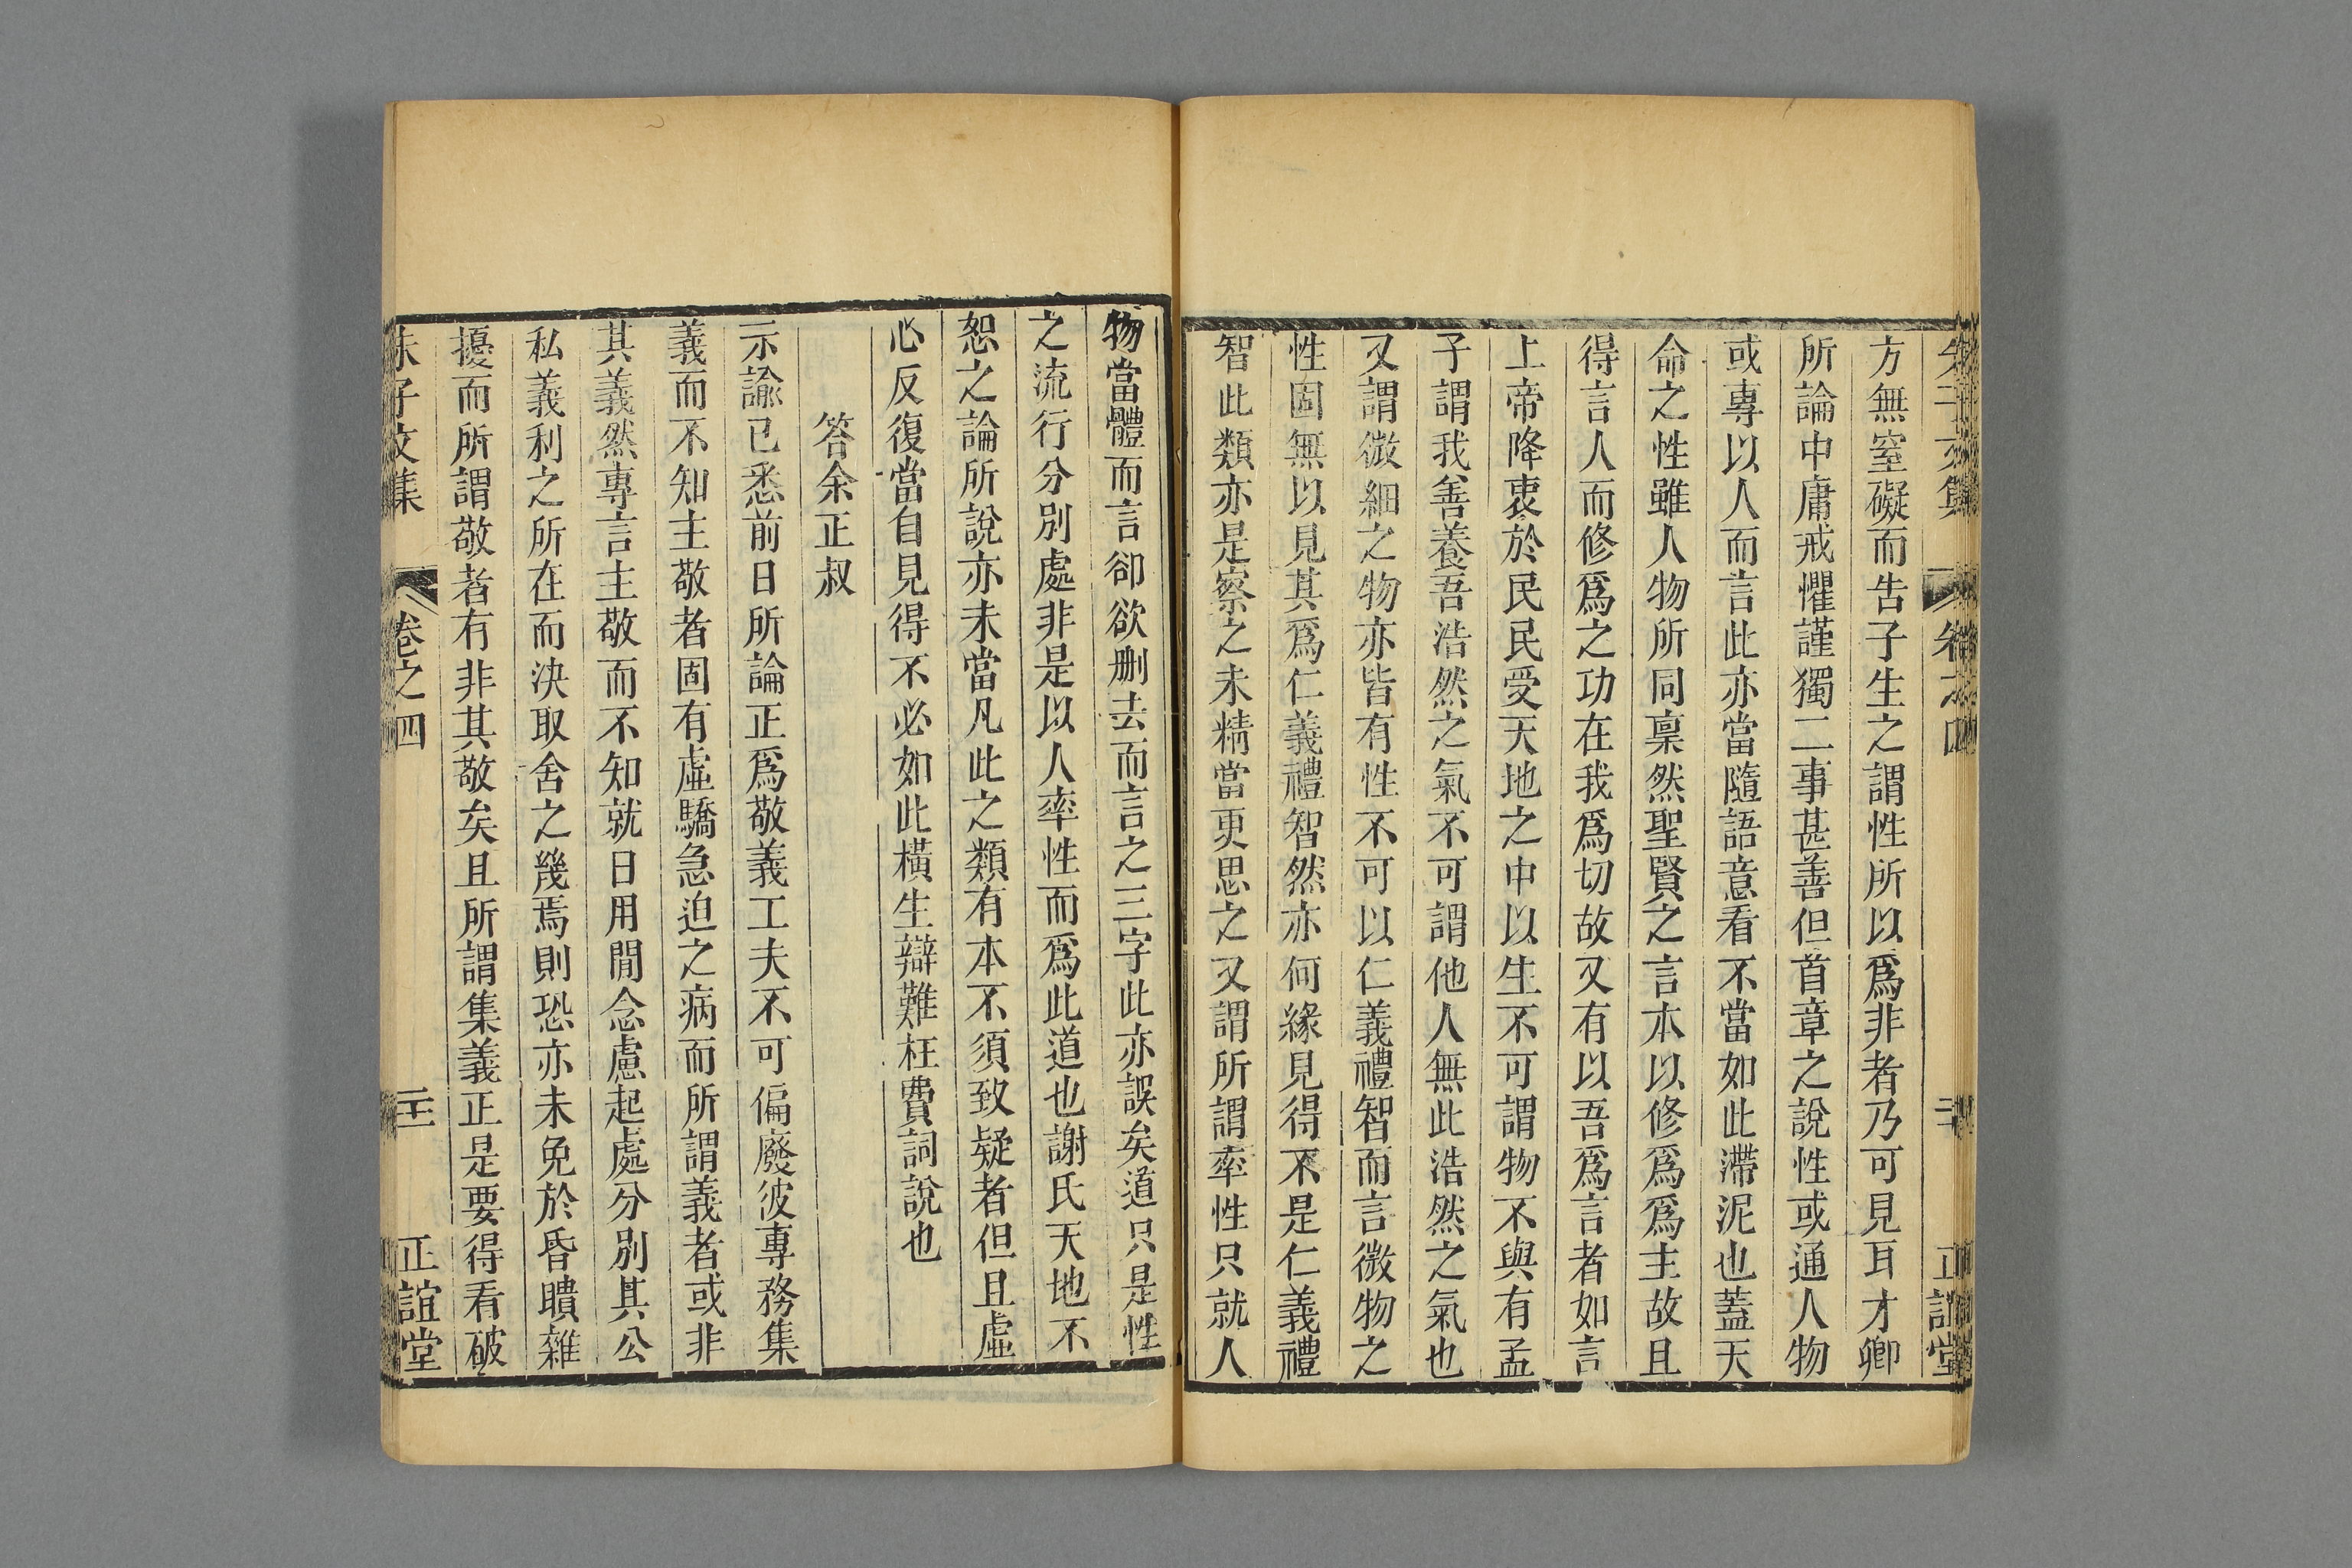 方無窒礙而告子生之謂性所以爲非者乃可見耳才卿
所論中庸戒懼謹獨二事甚善但首章之說性或通人物
或專以人而言此亦當隨語意看不當如此滯泥也蓋天
命之性雖人物所同稟然聖賢之言本以修爲爲主故且
得言人而修爲之功在我爲切故又有以吾爲言者如言
上帝降衷於民民受天地之中以生不可謂物不與有孟
子謂我善養吾浩然之氣不可謂他人無此浩然之氣也
又謂微細之物亦皆有性不可以仁義禮智而言微物之
性固無以見其爲仁義禮智然亦何緣見得不是仁義禮
智此類亦是察之未精當更思之又謂所謂率性只就人
物當體而言卻欲刪去而言之三字此亦誤矣道只是性
之流行分別處非是以人率性而爲此道也謝氏天地不
恕之論所說亦未當凡此之類有本不須致疑者但且虛
心反復當自見得不必如此橫生辯難枉費詞說也
答余正叔
示諭已悉前日所論正爲敬義工夫不可偏廢彼專務集
義而不知主敬者固有虛驕急迫之病而所謂義者或非
其義然專言主敬而不知就日用閒念慮起處分別其公
私義利之所在而決取舍之幾焉則恐亦未免於昏瞶雜
擾而所謂敬者有非其敬矣且所謂集義正是要得看破
朱子文集 卷之四 二十一 正誼堂